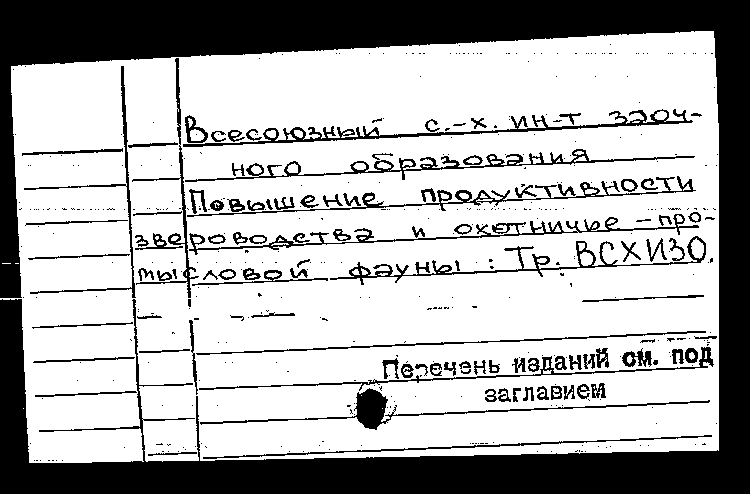 Всесоюзный с.-х. ин-т заоч-
ного образования
Повышение продуктивности
звероводства и охотничье-про-
мысловой фауны : Тр. ВСХИЗО.
Перечень изданий см. под
заглавием